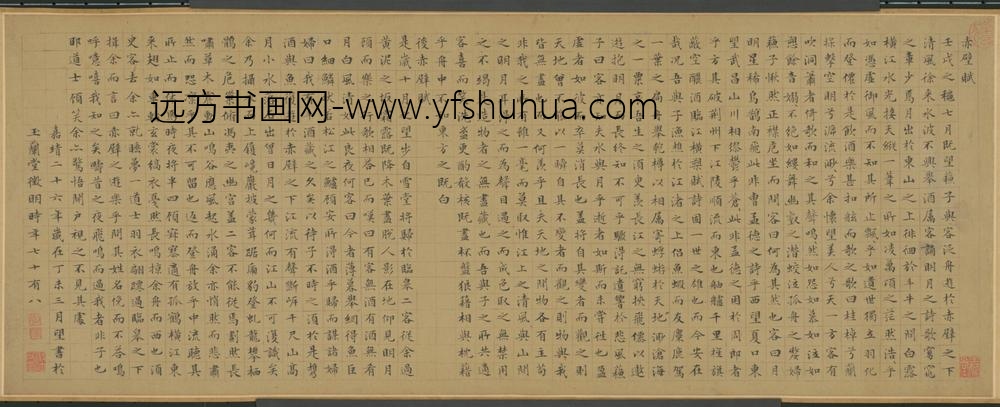 赤壁賦
壬戌之穐七月既望蘇子與客泛舟遊於赤壁之下
清風徐來水波不興舉酒屬客誦明月之詩歌窈窕
之章少焉月出於東山之上徘徊於斗牛之間白露
橫江水光接天縱一葦之所如凌萬頃之茫然浩乎
如憑虛御風而不知其所止飄乎如遺世獨立羽化
而登僊於是飲酒樂甚扣舷而歌之歌曰桂棹兮蘭
槳擊空明兮泝流光渺渺兮予懷望美人兮天一方客有
吹洞簫者倚歌而和之其聲嗚然如怨如慕如泣如
愬餘音嫋不絕如縷舞幽壑之潛蛟泣孤舟之嫠婦
蘇子愀然正襟危坐而問客曰何為其然也客曰月
明星稀烏鵲南飛此非曹孟德之詩乎西望夏口東
望武昌山川相繆鬱乎蒼此非孟德之困於周郎者
乎方其破荊州下江陵順流而東也舳艫千里旌旗
蔽空釃酒臨江橫槊賦詩固一世之雄也而今安在
哉況吾與子漁樵於江渚之上侶魚蝦而友麋鹿駕
一葉之扁舟舉匏樽以相屬寄蜉蝣於天地渺滄海
之一粟哀吾生之須臾羨長江之無窮挾飛僊以遨
遊抱明月而長終知不可乎驟得託遺響於悲風蘇
子曰客亦知夫水與月乎逝者如斯而未嘗往也盈
虛者如彼而卒莫消長也蓋將自其變者而觀之則
天地曾不能以一瞬自其不變者而觀之則物與我
皆無盡也而又何羨乎且夫天地之間物各有主苟
非我之所有雖一毫而莫取惟江上之清風與山間
之明月耳得之而為聲目遇之而成色取之無禁用
之不竭是造物者之無盡藏也而吾與子之所共適
客喜而笑洗盞更酌肴核既盡杯盤狼藉相與枕藉
乎舟中不知東方之既白
後赤壁賦
是歲十月之望步自雪堂將歸於臨皋二客從余過
黃泥之坂霜露既降木葉盡脫人影在地仰見明月
顧而樂之行歌相答已而嘆曰有客無酒有酒無肴
月白風清如此良夜何客曰今者薄暮舉網得魚巨
口細鱗狀似松江之鱸顧安所得酒乎歸而謀諸婦
婦曰我有斗酒藏之久矣以待子不時之須於是攜
酒與魚復遊於赤壁之下江流有聲斷岸千尺山高
月小水落石出曾日月之幾何而江山不可復識矣
余乃攝衣而上履巉巖披蒙茸踞虎豹登虬龍攀棲
鶻之危巢俯馮夷之幽宮蓋二客不能從焉劃然長
嘯草木震動山鳴谷應風起水涌余亦悄然而悲肅
然而恐凜乎其不可留也返而登舟放乎中流聽其
所止而休焉時夜將半四顧寂寥適有孤鶴橫江東
來翅如車輪玄裳縞衣戛然長鳴掠余舟而西也須
臾客去余亦就睡夢一道士羽衣翩躚過臨皋之下
揖余而言曰赤壁之遊樂乎問其姓名俛而不答嗚
呼噫嘻我知之矣疇昔之夜飛鳴而過我者非子也
耶道士顧笑余亦驚悟開戶視之不見其處
嘉靖二十六年歲在丁未三月望書於
玉蘭堂徵明時年七十有八
远方书画网-www.yfshuhua.com